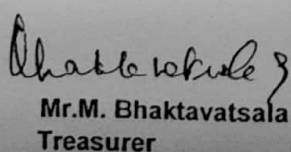 Mr.M. Bhaktavatsala
Treasurer